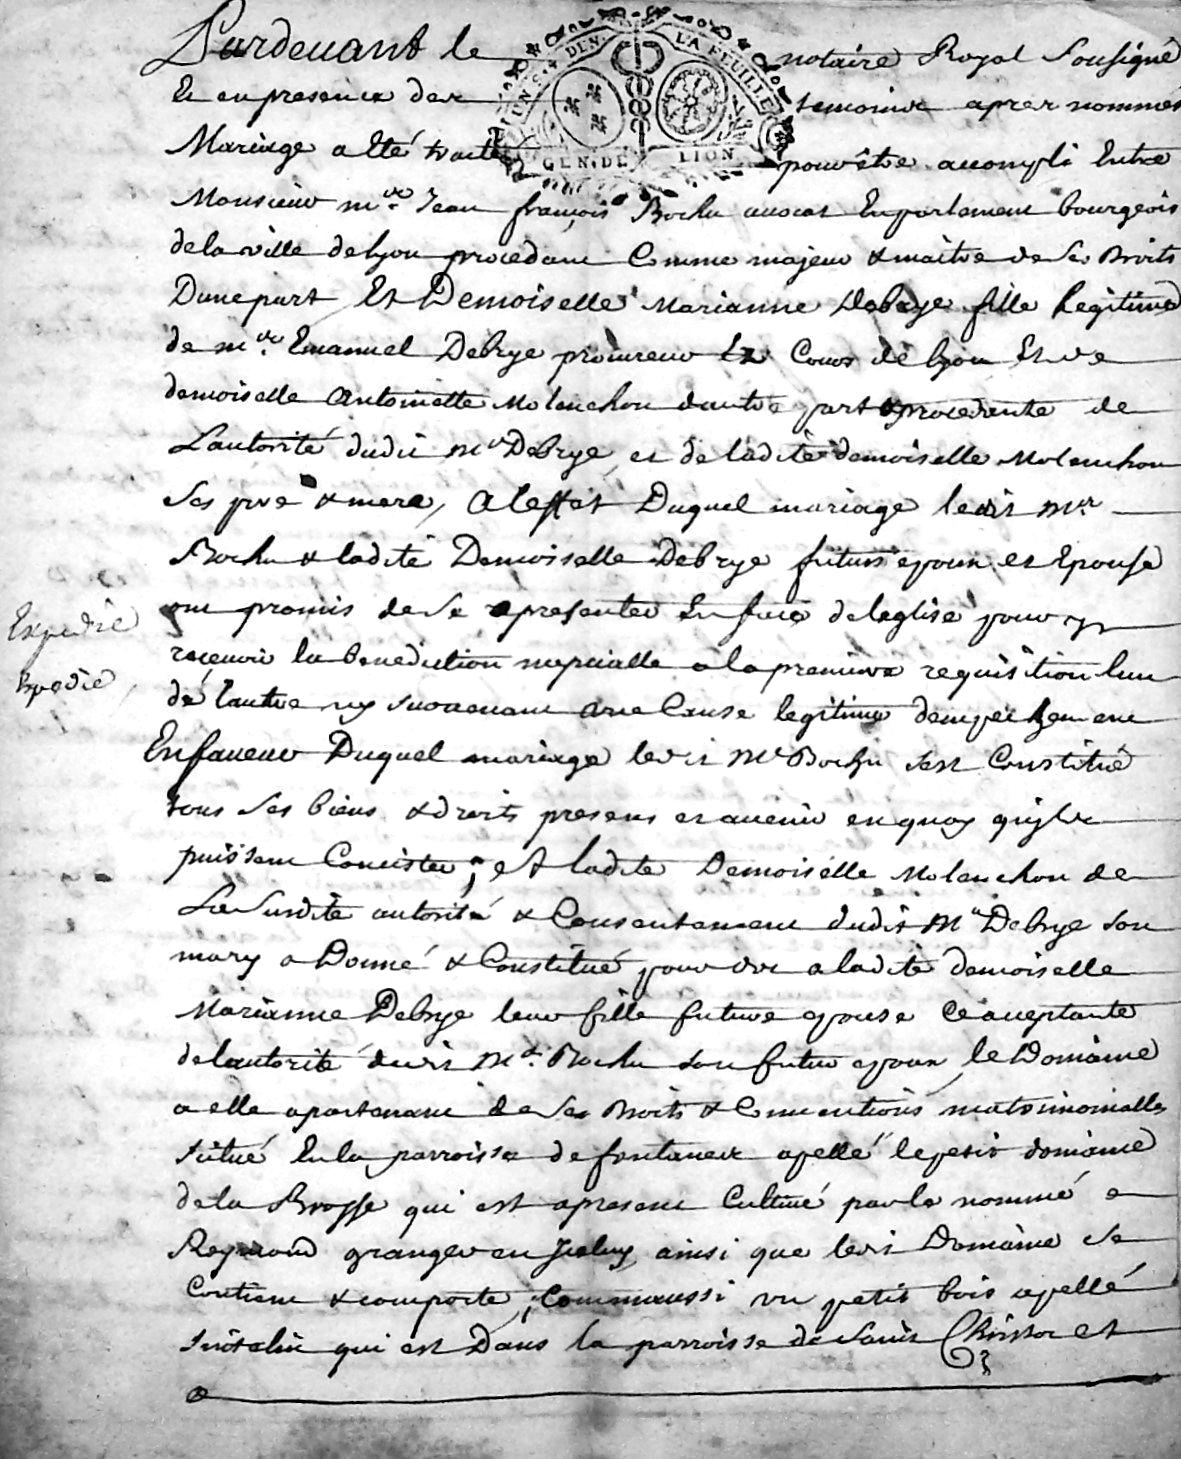 Pardevant le notaire Royal Sousigné
Et en presence des temoins apres nommés
Mariage a Eté traité pour être accompli Entre
Monsieur mre Jean françois Rochu avocat En parlement bourgeois
de la ville de lyon procedant Comme majeur & maitre de ses Droits
Dune part, Et Demoiselle Marianne Debrye fille legitime
de mre Emanuel Debrye procureur Es Cours de lyon Et de
demoiselle Antoinette Molenchon dautre part & procedante de
Lautorité dudit Mr Debrye, et de ladite demoiselle Molenchon
Ses pere & mere, A leffet Duquel mariage ledit Mr
Rochu & ladite Demoiselle Debrye futurs epoux et Epouse
ont promis de se representer En face de leglise pour y
recevoir la benediction nuptialle a la premiere requisition lun
de lautre ny survenant aucune Cause legitime dempechement
En faveur Duquel mariage ledit Mr Rochu sest Constitué
tous Ses biens & droits presens et avenir en quoy quils
puissent Concister ; et ladite Demoiselle Molenchon de
La Susdite autorité & Consentement dudit Mr Debrye son
mary a Donné & Constitué pour dot a ladite demoiselle
Marianne Debrye leur fille future epouse Ce acceptante
de lautorité dudit Mr Rochu son futur epoux, le Domaine
a elle apartenant de Ses Droits & Conventions matrimonialles
situé En la parroisse de fontanes apellé le petit domaine
de la Brosse qui est apresent Cultivé par le nommé
Reymond granger en Jceluy, ainsi que ledit Domaine se
Contient & comporte ; Comm'aussi un petit bois apellé
qui est Dans la parroisse de Saint Christo et
Expedié
Expedié
GEN. DE LION
LA FEUILLE